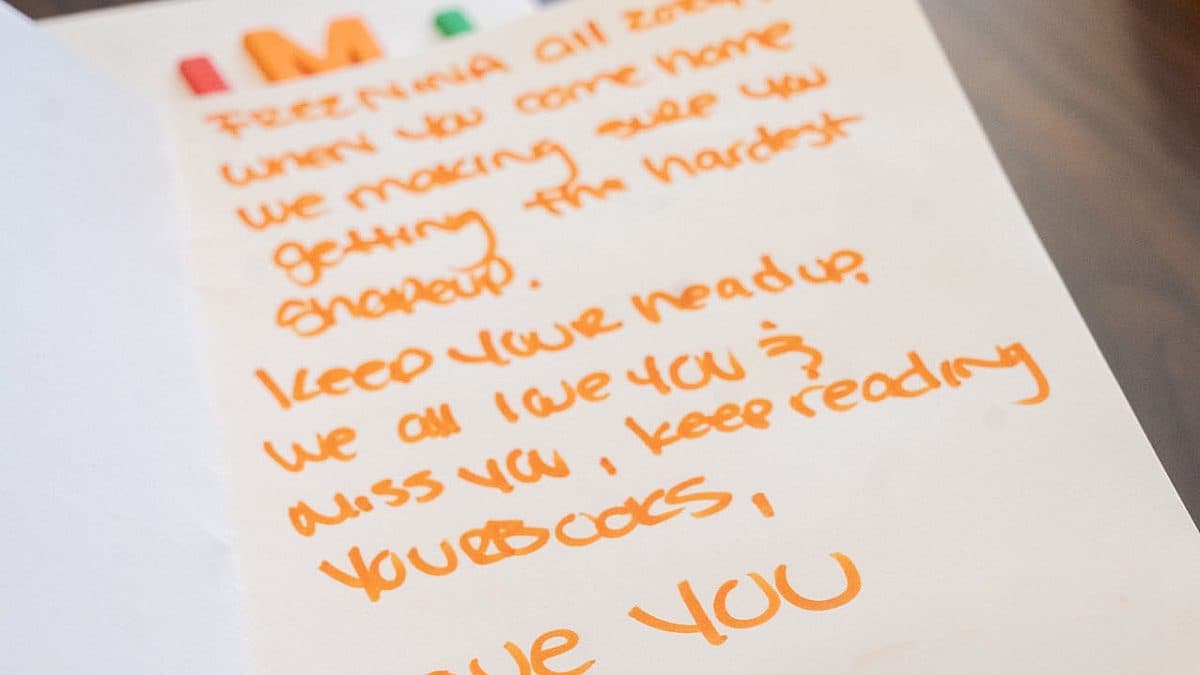 I M
FREE NINA all 2024!
when you come home
we making sure you
getting the hardest
shapeup.
Keep your head up,
we all love you &
miss you, keep reading
your Books,
you